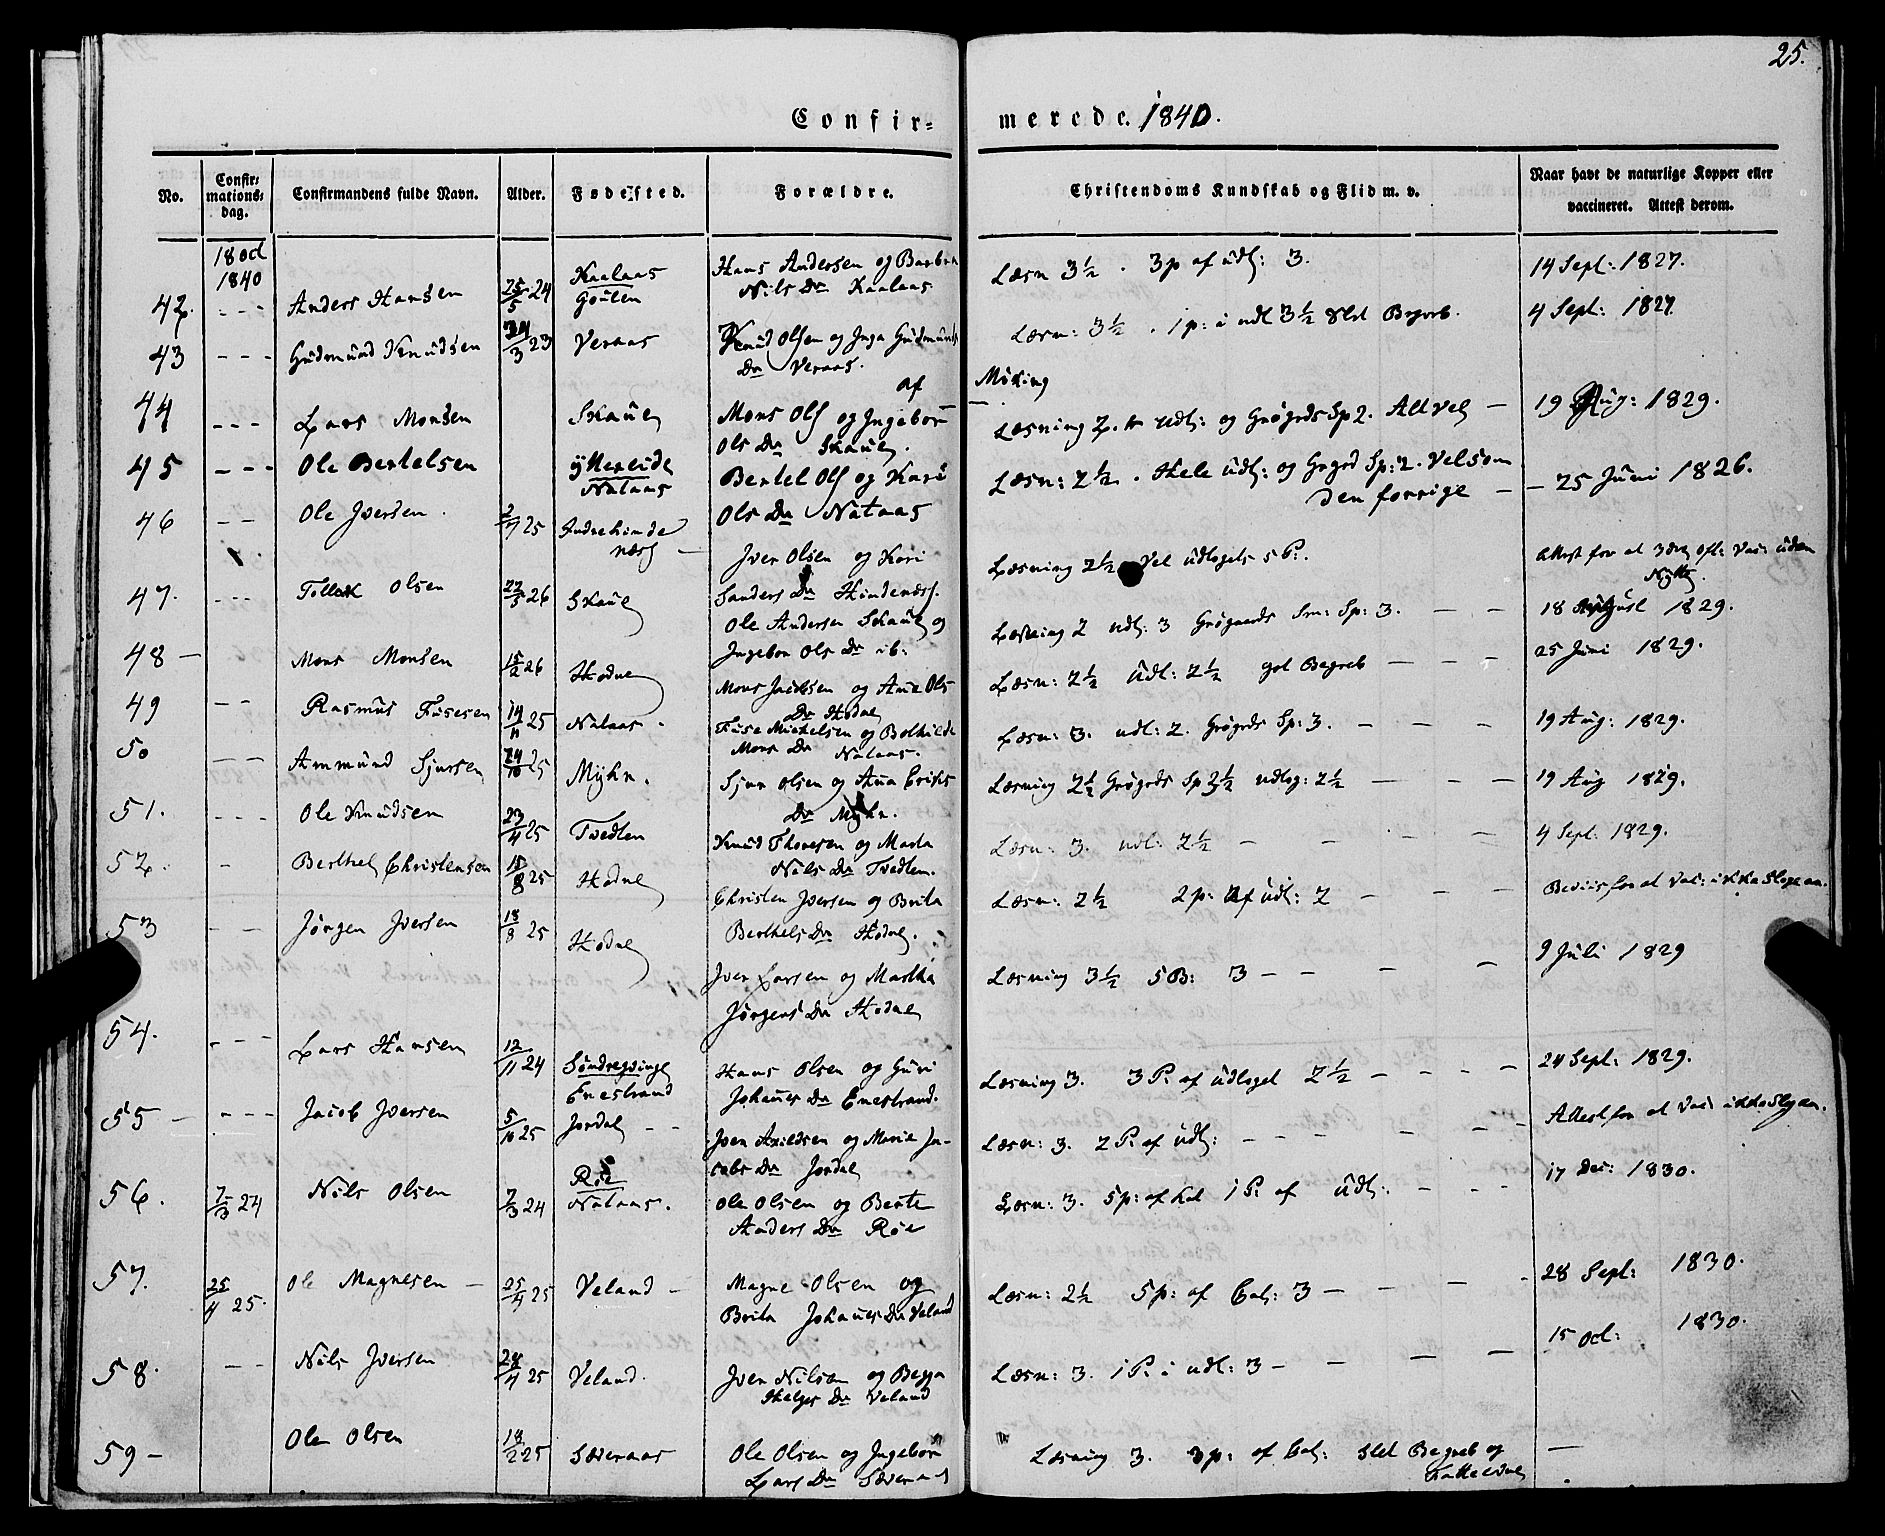 25.
Confir= merede. 1840.
No.
Confir=
mations=
dag.
Confirmandens fulde Navn.
Alder.
Fødested.
Forældre.
Christendoms Kundskab og Flid m. v.
Naar havt de naturlige Kopper eller
vaccineret. Attest derom.
18 Oct
1840
42. - - - Anders Hansen 25/5 24 Kaalaas
Goulen
Hans Andersen og Barbra
Nils Dr Kaalaas
Læsn 3½ . 3p af udl: 3.
14 Sept: 1827.
43 - - - Gudmund Knudsen 3 23 Veraas
Knud Olsen og Inga Gudmunds
Dr Veraas.
Læsn: 3½ . 1p: i udl 3½ Slet Begreb.
4 Sept: 1827.
44 - - - Lars Monsen
Mons Ols og Ingebor
Ols Dr
Læsning 2. udl: og Grøgrds Sp 2. All Vel —
19 Aug: 1829.
45 - - - Ole Bertelsen
Yttereide
Nataas
Bertel Ols og Kari
Ols Dr Nataas
Læsn: 2½ . Hele Udl: og Sp: 2. Vel som
den forrige —
— 25 Juni 1826.
46 - - Ole Iversen . 25
Iver Olsen og Kari
Sanders Dr
Læsning 2½ Vel udlagels 5 P:.
Attest for at Vac: uden
Nytte.
47. - - - Tollak Olsen 26
Ole Andersen og
Ingebor Ols Dr ib:
Læsning 2 udl: 3 Grøgaards Sp: 3. — —
18 August 1829.
48 — Mons Monsen 15/2 26 Hodne
Mons Jacobsen og Ana Ols
Dr Hodne
Læsn: 2½ Udl: 2½ got Begreb — — —
25 Juni 1829.
49 - - Rasmus Fusesen 14/11 25 Nataas -
Fuse Michelsen og Bolhilde
Mons Dr Nataas.
Læsn: 3. udl: 2. Grøgrds Sp: 3. — — —
19 Aug: 1829.
50 - - Ammund Sjursen 24/10 25 Myhr.
Sjur Olsen og Ana Eriks
Dr Myhr.
Læsning 2½ Grøgrds Sp 2½ udlog: 2½ — — —
19 Aug 1829.
51. - - - Ole Knudsen 23/4 25 Tvedten
Knud Thoresen og Marta
Nils Dr Tvedten.
Læsn: 3. udl: 2½ — — — —
4 Sept: 1829.
52. - Berthel Christensen 15/8 25 Hodne
Christen Iversen og Brita
Berthels Dr Hodne.
Læsn: 2½ 2p: af udl: 2 — — — —
Beviis for at Vac: ikke an.
53 - - Jørgen Iversen 18/8 25 Hodne
Iver Larsen og Martha
Jørgens Dr Hodne
Læsning 3½ 5 B: 3 — — — —
9 Juli 1829
54. - - - Lars Hansen 12/11 24
Enestrand
Hans Olsen og Guri
Johanes Dr Enestrand.
Læsning 3. 3 P: af udlaget 2½ — — — —
24 Sept: 1829.
55 — - - - Jacob Iversen 5/10 25 Jordal - -
Iver og Marie Ja-
cobs Dr Jordal
Læsn: 3. 2 P: af udl: — — — — — —
Attest for at Vac: ikke an.
56. 7/3 24 Nils Olsen 7/3 24 Røe
Nataas.
Ole Olsen og Berte
Anders Dr Røe
Læsn: 3. 5p: af 1 P: af Udl: — — —
17 Dec: 1830.
57. 25/4 25. Ole Magnesen — 25/4 25 Veland —
Magne Olsen og
Brita Johanes Dr Veland
Læsn: 2½ 5p: af Cat: 3 — — — —
28 Sept: 1830.
58. - - Nils Iversen 28/4 25 Veland.
Iver Nilsen og
Helges Dr Veland
Læsn: 3. 1 P: i udl: 3 — — — —
15 Oct: 1830.
59 — Ole Olsen 18/2 25 Sæveraas
Ole Olsen og Ingebor
Lars Dr
Læsning 3. 3p: af Cat: Slet Begreb og
—